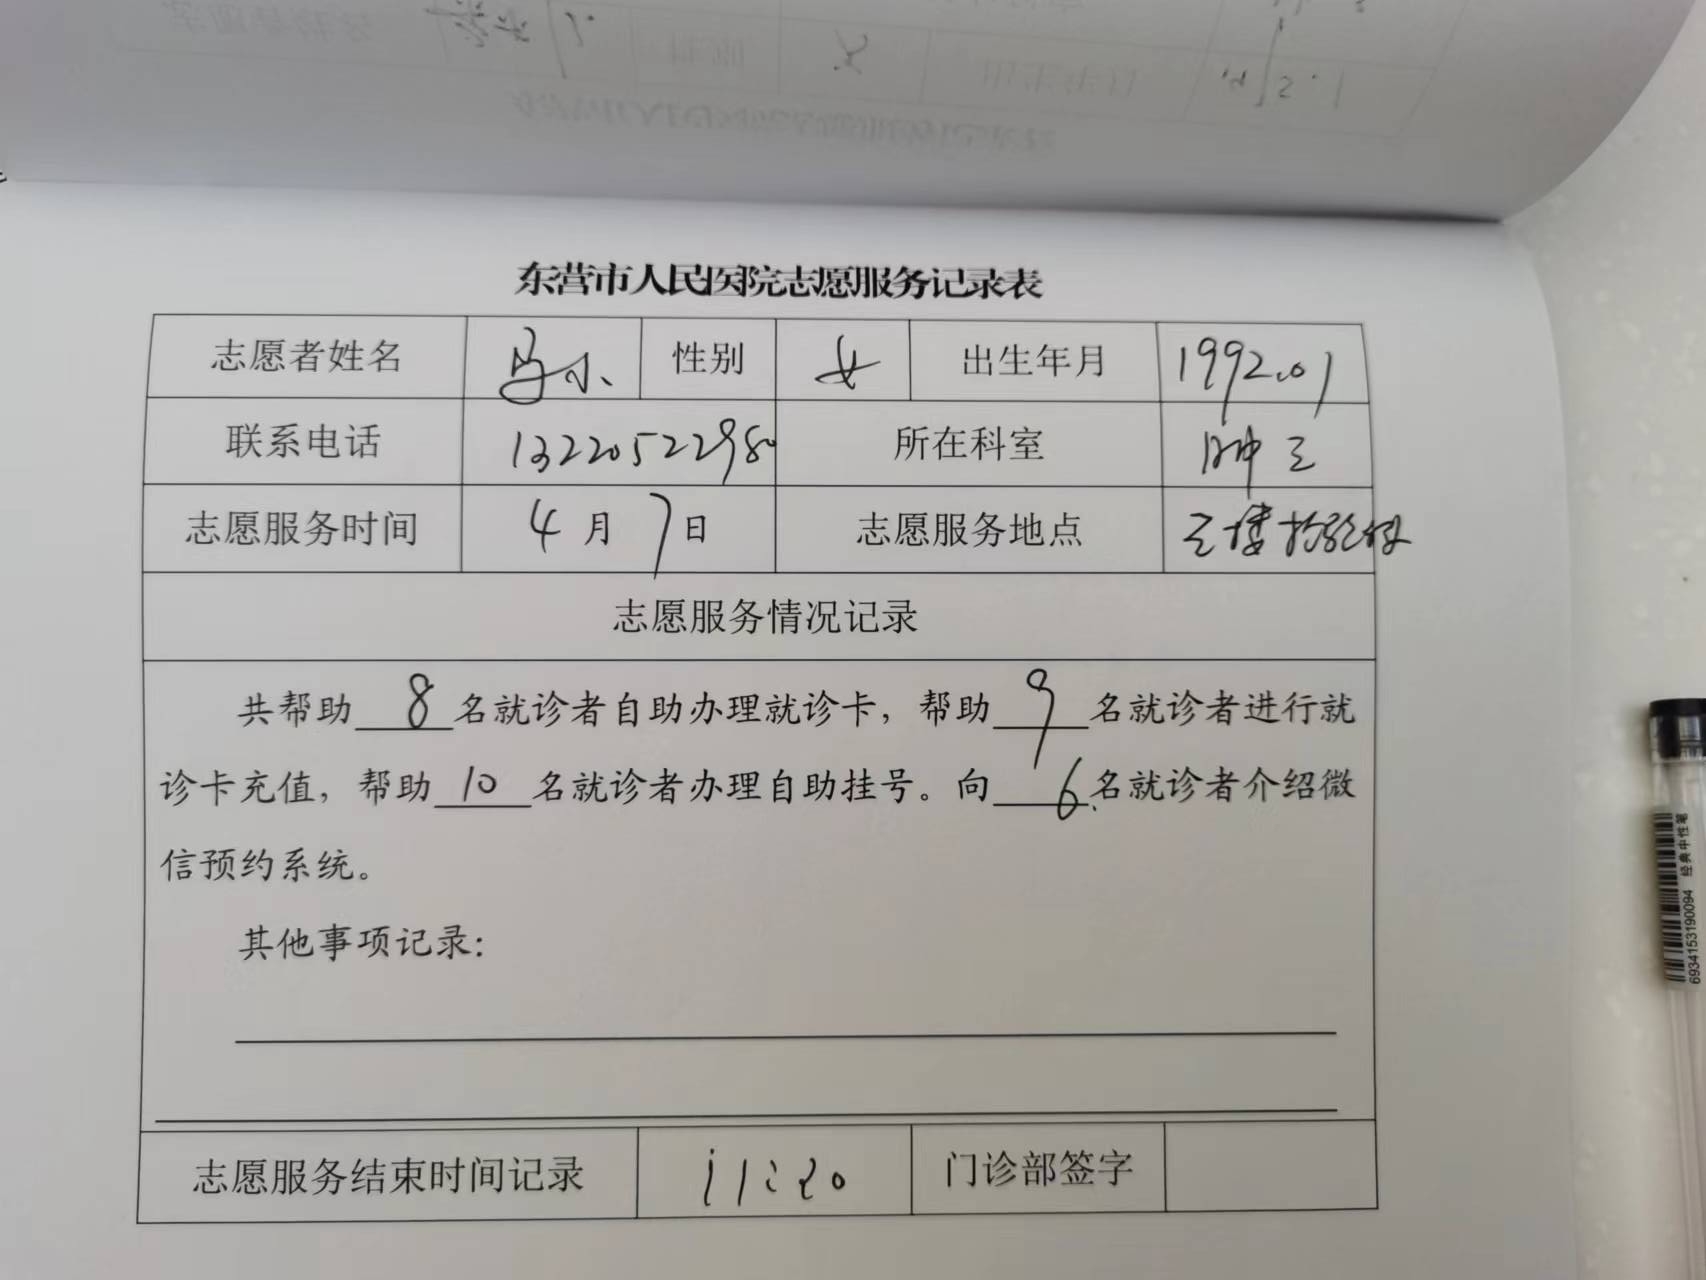 东营市人民医院志愿服务记录表
志愿者姓名 马小 性别 女 出生年月 1992.01
联系电话 13220522980 所在科室 肿三
志愿服务时间 4月7日 志愿服务地点 三楼
志愿服务情况记录
共帮助8名就诊者自助办理就诊卡，帮助9名就诊者进行就
诊卡充值，帮助10名就诊者办理自助挂号。向6名就诊者介绍微
信预约系统。
其他事项记录：
志愿服务结束时间记录 11:20 门诊部签字
经典中性笔
6934153190094